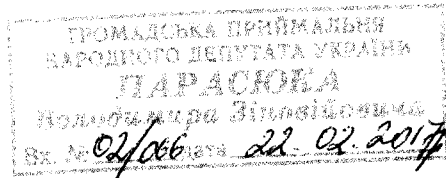 ГРОМАДСЬКА ПРИЙМАЛЬНЯ
НАРОДНОГО ДЕПУТАТА УКРАЇНИ
ПАРАСЮКА
Володимира Зіновійовича
Вх. № 02/066 дата 22. 02. 2017р